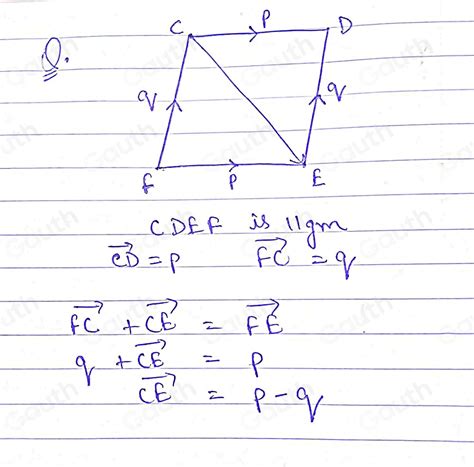 Q.
C P D
q q
F P E
CDEF is ||gm
CD = p FC = q
FC + CE = FE
q + CE = p
CE = p - q